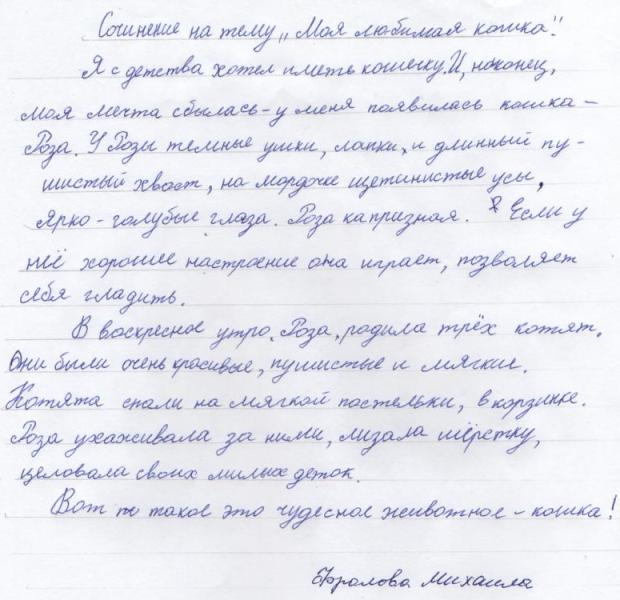 Сочинение на тему „Моя любимая кошка".
Я с детства хотел иметь кошечку. И, наконец,
моя мечта сбылась - у меня появилась кошка -
Роза. У Розы темные ушки, лапки, и длинный пу-
шистый хвост, на мордочке щетинистые усы,
ярко - голубые глаза. Роза капризная. Если у
неё хорошее настроение она играет, позволяет
себя гладить.
В воскресное утро, Роза, родила трёх котят.
Они были очень красивые, пушистые и мягкие.
Котята спали на мягкой постельки, в корзинке.
Роза ухаживала за ними, лизала шёрстку,
целовала своих милых деток.
Вот такое это чудесное животное - кошка!
Фролова Михаила